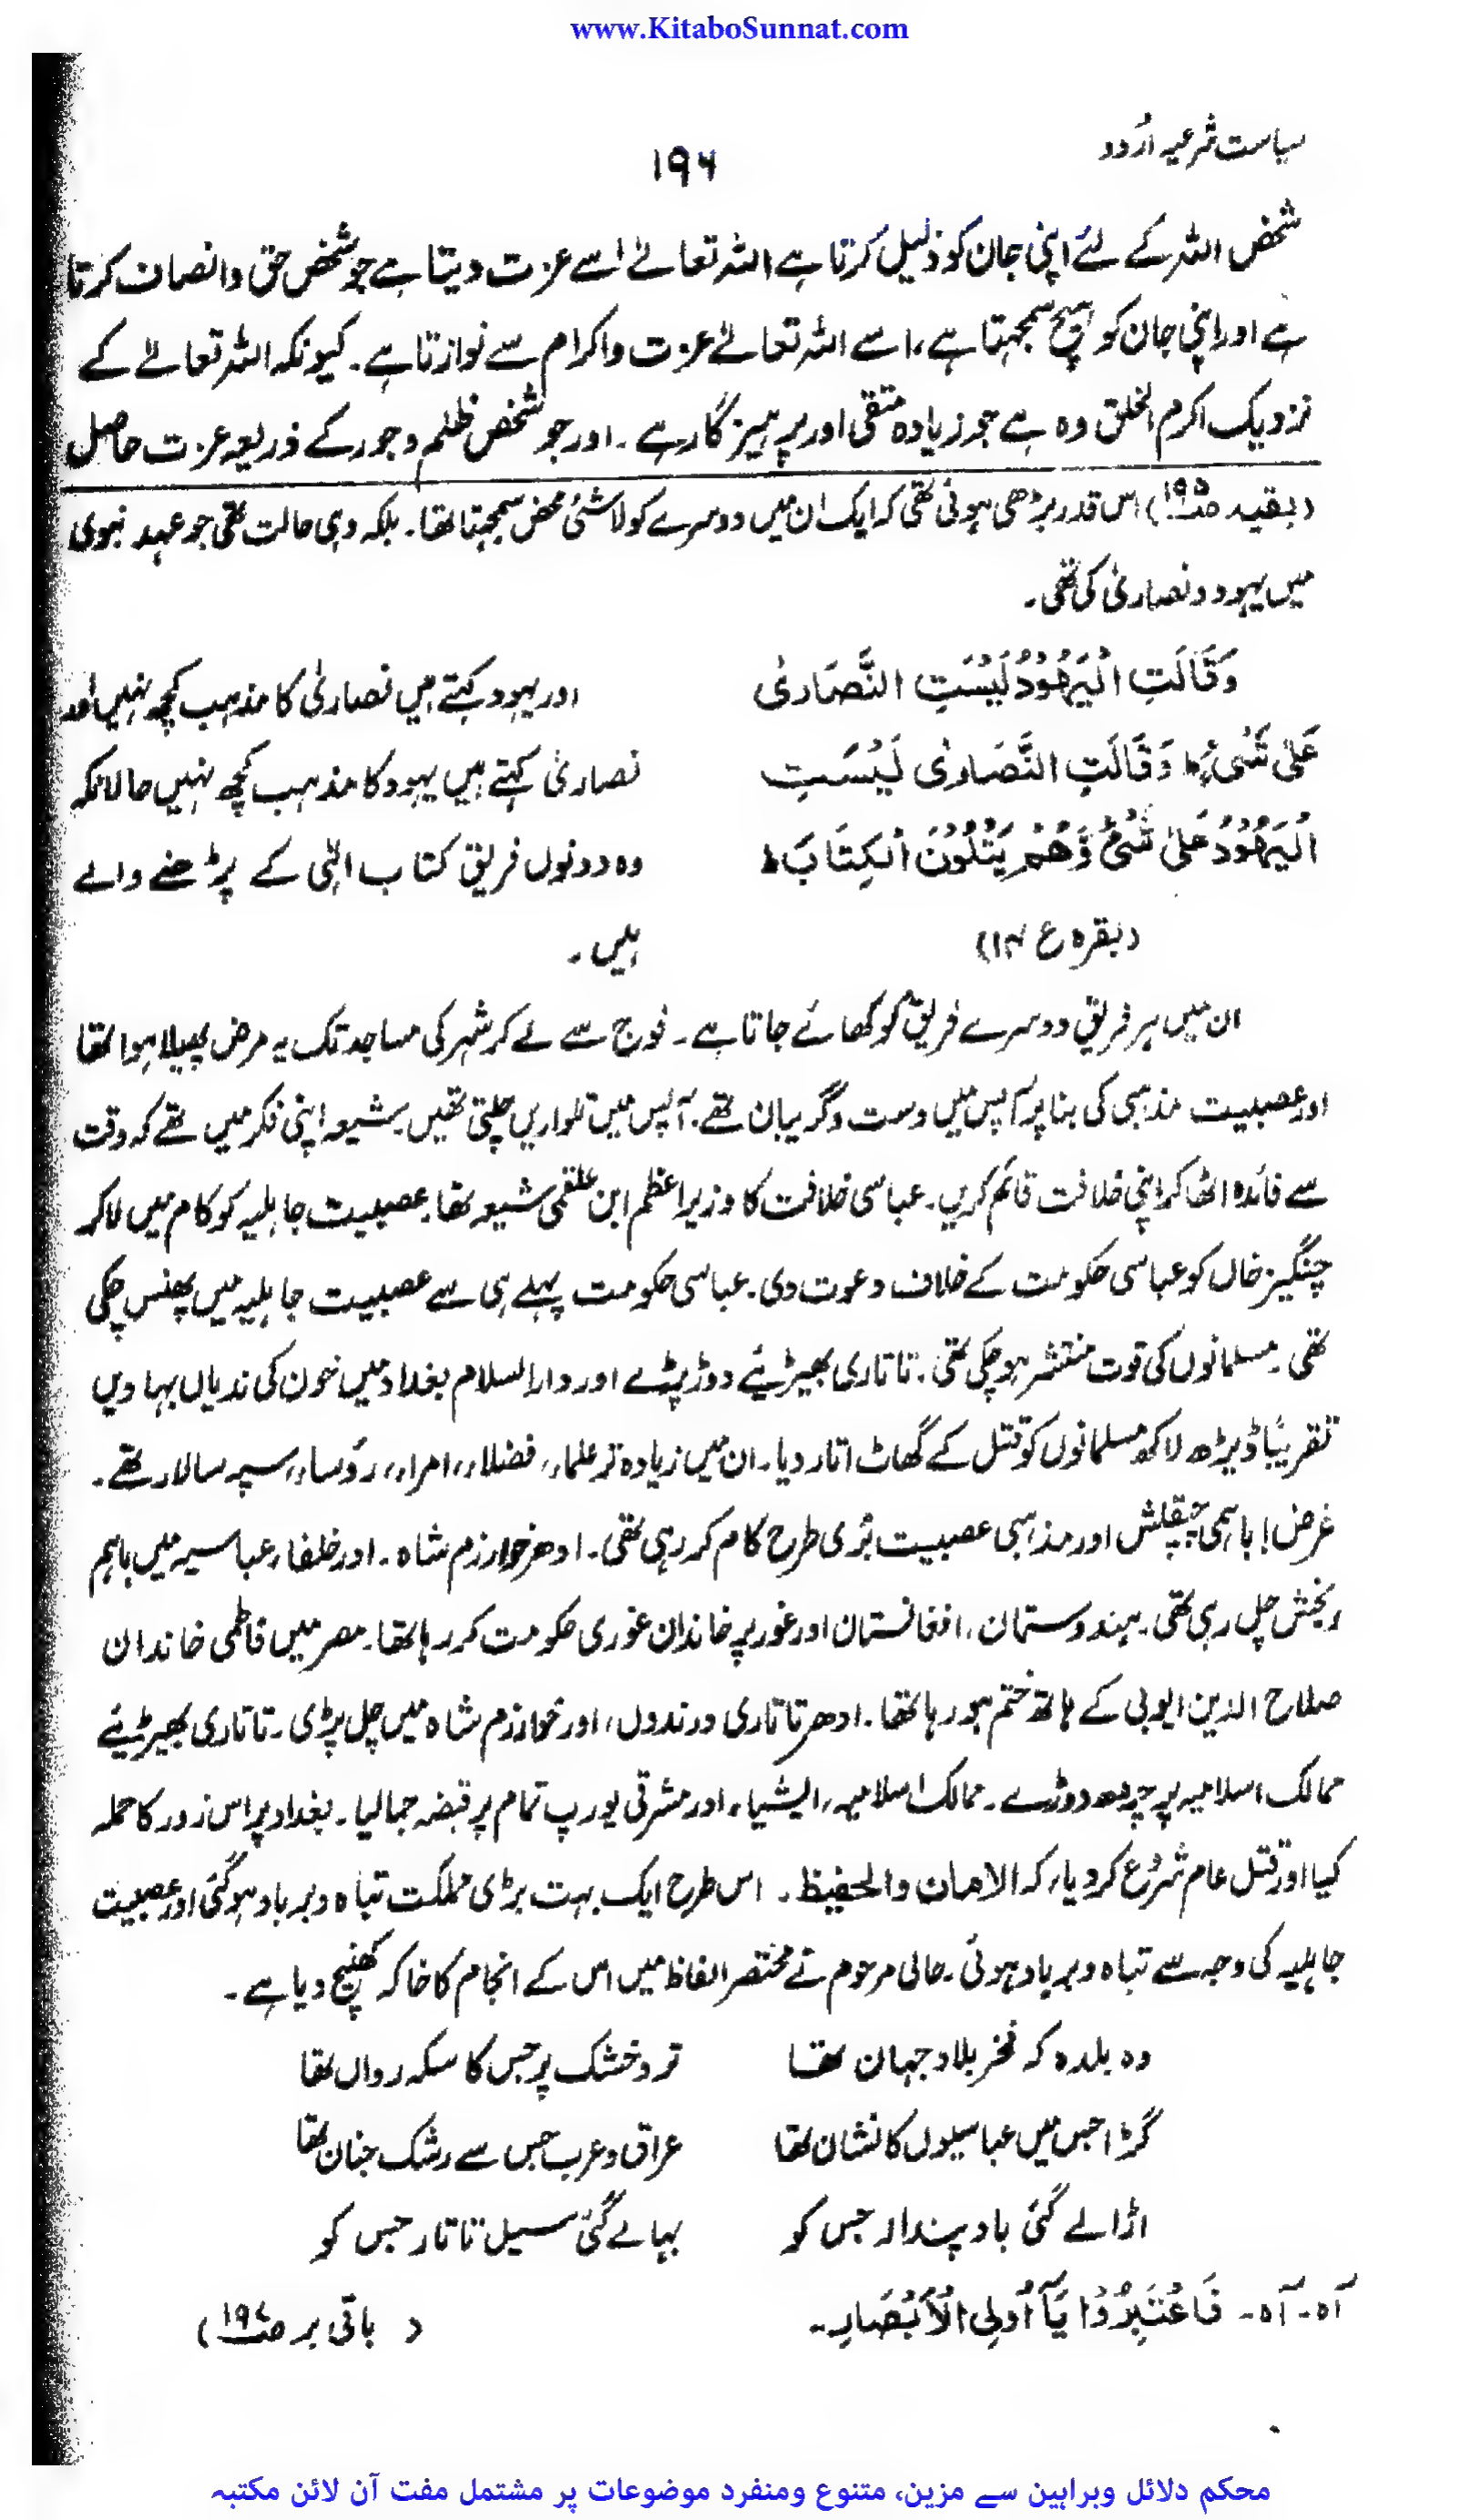 www.KitaboSunnat.com
سیاست شرعیہ اردو
۱۹۶
شخص اللہ کے لئے اپنی جان کو ذلیل کرتا ہے اللہ تعالےٰ اسے عزت دیتا ہے جو شخص حق و انصاف کرتا
ہے اور اپنی جان کو ہیچ سمجہتا ہے، اسے اللہ تعالےٰ عزت و اکرام سے نوازتا ہے۔ کیونکہ اللہ تعالےٰ کے
نزدیک اکرم الخلق وہ ہے جو زیادہ متقی اور پرہیز گار ہے۔ اور جو شخص ظلم و جور کے ذریعہ عزت حاصل
(بقیہ صـ۱۹۵) اس قدر بڑھی ہوئی تھی کہ ایک ان میں دوسرے کو لا شئی محض سمجہتا تھا۔ بلکہ وہی حالت تھی جو عہد نبوی
میں یہود و نصاریٰ کی تھی۔
وَقَالَتِ الْیَهُوْدُ لَیْسَتِ النَّصَارٰی
اور یہود کہتے ہیں نصاریٰ کا مذہب کچھ نہیں اور
عَلٰی شَیْءٍ وَقَالَتِ النَّصَارٰی لَیْسَتِ
نصاریٰ کہتے ہیں یہود کا مذہب کچھ نہیں حالانکہ
الْیَهُوْدُ عَلٰی شَیْءٍ وَّهُمْ یَتْلُوْنَ الْکِتَابَ ط
وہ دونوں فریق کتاب الٰہی کے پڑھنے والے
(بقرہ ع ۱۴)
ہیں۔
ان میں ہر فریق دوسرے فریق کو کھائے جاتا ہے۔ فوج سے لے کر شہر کی مساجد تک یہ مرض پھیلا ہوا تھا
اور عصبیت مذہبی کی بنا پر آپس میں دست و گریبان تھے۔ آپس میں تلواریں چلتی تھیں۔ شیعہ اپنی فکر میں تھے کہ وقت
سے فائدہ اٹھا کر اپنی خلافت قائم کریں۔ عباسی خلافت کا وزیر اعظم ابن علقمی شیعہ تھا۔ عصبیت جاہلیہ کو کام میں لا کر
چنگیز خاں کو عباسی حکومت کے خلاف دعوت دی۔ عباسی حکومت پہلے ہی سے عصبیت جاہلیہ میں پھنس چکی
تھی۔ مسلمانوں کی قوت منتشر ہو چکی تھی۔ تاتاری بھیڑیئے دوڑ پڑے اور دار السلام بغداد میں خون کی ندیاں بہا دیں
تقریبًا ڈیڑھ لاکھ مسلمانوں کو قتل کے گھاٹ اتار دیا۔ ان میں زیادہ تر علماء، فضلاء، امراء، رؤساء، سپہ سالار تھے۔
غرض! باہمی چپقلش اور مذہبی عصبیت بُری طرح کام کر رہی تھی۔ ادھر خوارزم شاہ۔ اور خلفاء عباسیہ میں باہم
رنجش چل رہی تھی۔ ہندوستان، افغانستان اور غور پر خاندان غوری حکومت کر رہا تھا۔ مصر میں فاطمی خاندان
صلاح الدین ایوبی کے ہاتھ ختم ہو رہا تھا۔ ادھر تاتاری درندوں، اور خوارزم شاہ میں چل پڑی۔ تاتاری بھیڑیئے
ممالک اسلامیہ پر چڑھ دوڑے۔ ممالک اسلامیہ، ایشیاء، اور مشرقی یورپ تمام پر قبضہ جما لیا۔ بغداد پر اس زور کا حملہ
کیا اور قتل عام شروع کر دیا، کہ الامان والحفیظ۔ اس طرح ایک بہت بڑی مملکت تباہ و برباد ہو گئی اور عصبیت
جاہلیہ کی وجہ سے تباہ و برباد ہوئی۔ حالی مرحوم نے مختصر الفاظ میں اس کے انجام کا خاکہ کھنیچ دیا ہے۔
وہ بلدہ کہ فخر بلاد جہان تھا
تر و خشک پر جس کا سکہ رواں تھا
گڑا جس میں عباسیوں کا نشان تھا
عراق و عرب جس سے رشک جنان تھا
اڑا لے گئی باد پندار جس کو
بہا لے گئی سیل تاتار جس کو
آہ۔ آہ۔ فَاعْتَبِرُوْا یَآ اُولِی الْاَبْصَارِ۔
(باقی بر صـ۱۹۷)
محکم دلائل وبراہین سے مزین، متنوع ومنفرد موضوعات پر مشتمل مفت آن لائن مکتبہ